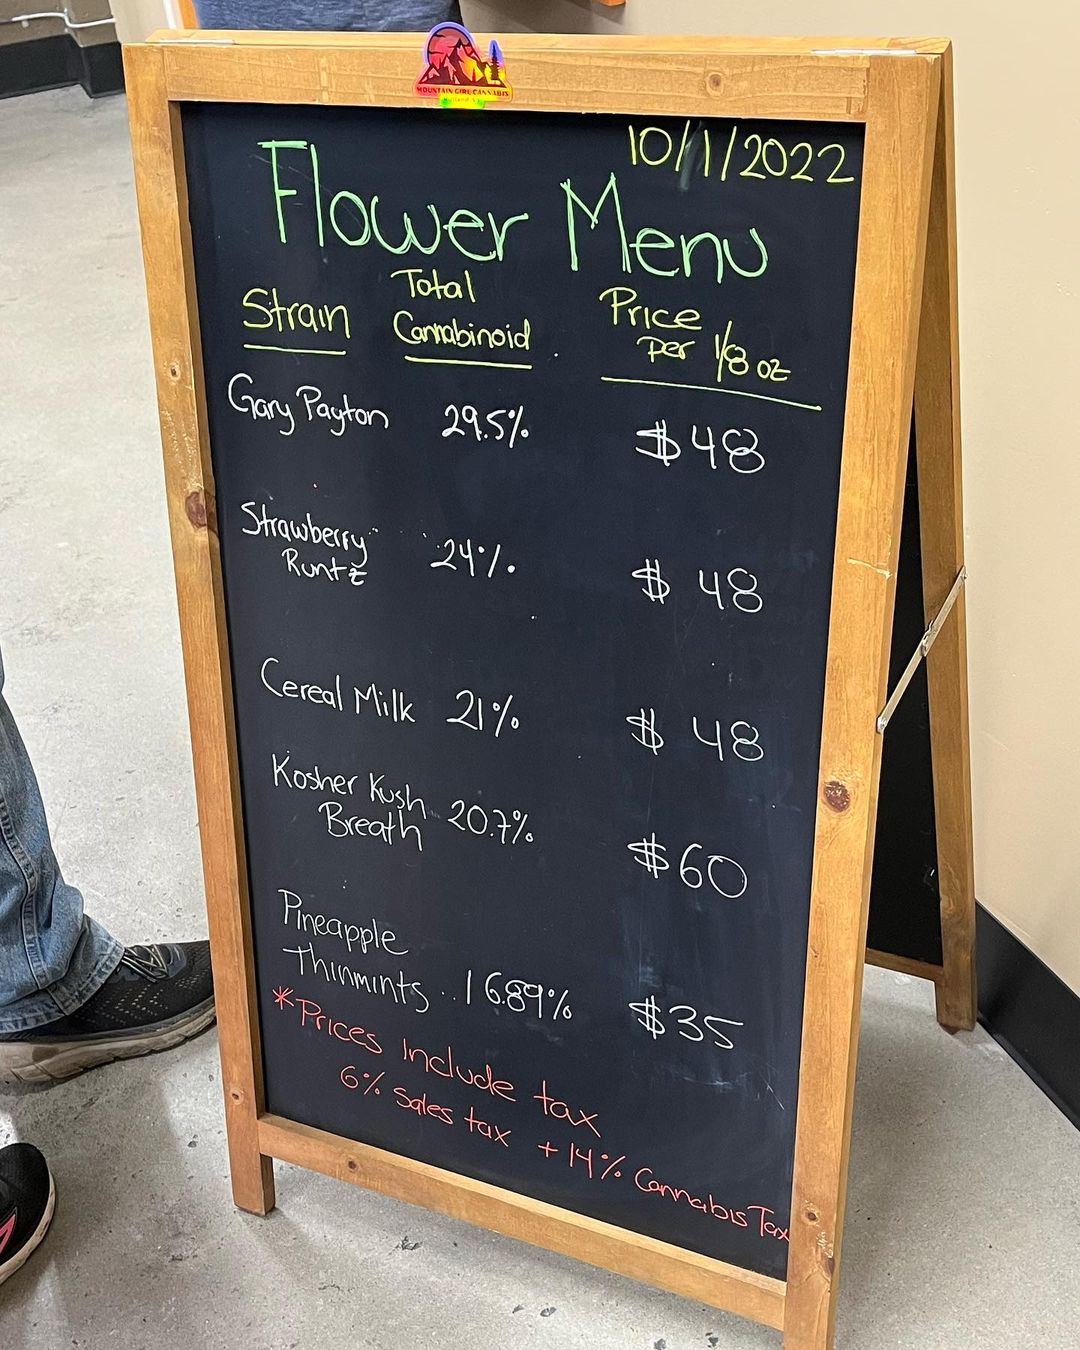 MOUNTAIN GIRL CANNABIS
10/1/2022
Flower Menu
Strain
Total
Cannabinoid
Price
per 1/8 oz
Gary Payton 29.5% $48
Strawberry
Runtz 24% $48
Cereal Milk 21% $48
Kosher Kush
Breath 20.7% $60
Pineapple
Thinmints 16.89% $35
*Prices include tax
6% Sales tax + 14% Cannabis Tax